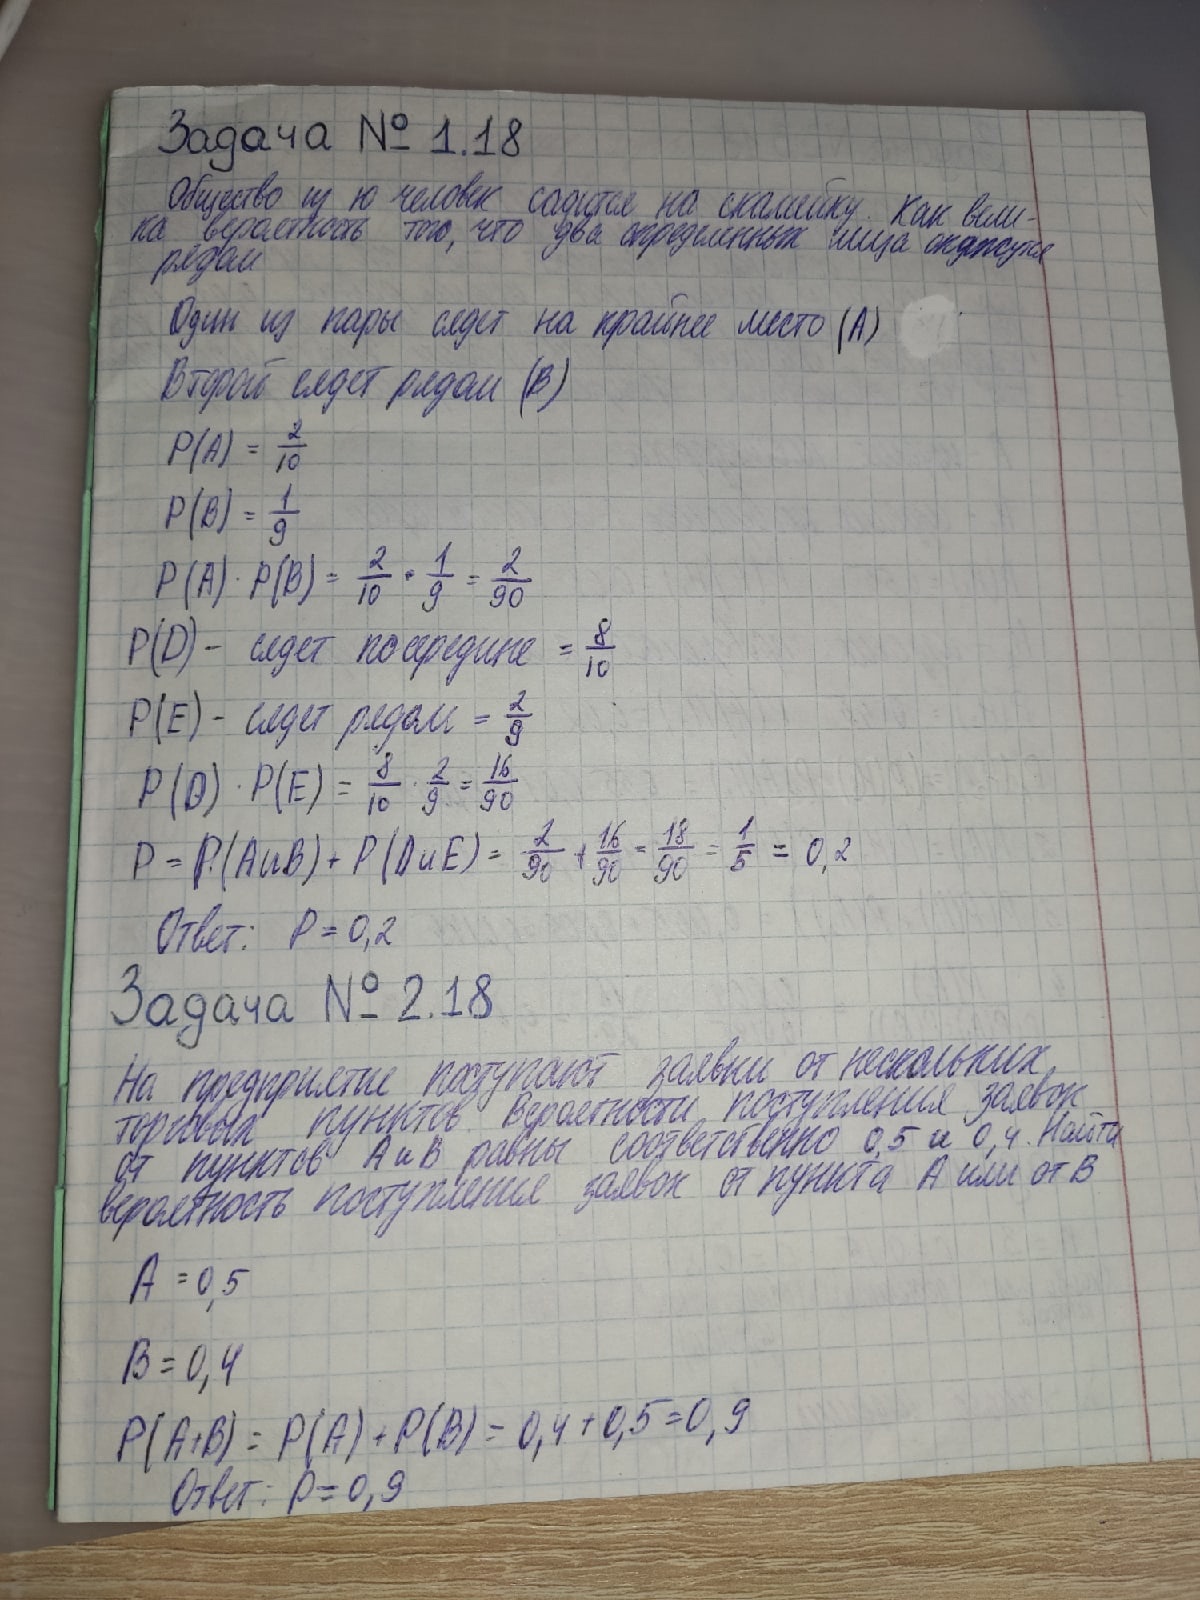 Задача № 1.18
Общество из 10 человек садится на скамейку. Как вели-
ка вероятность того, что два определенных лица окажутся
рядом
Один из пары сядет на крайнее место (А)
Второй сядет рядом (В)
P(A) = 2/10
P(B) = 1/9
P(A) · P(B) = 2/10 · 1/9 = 2/90
P(D) - сядет посередине = 8/10
P(E) - сядет рядом = 2/9
P(D) · P(E) = 8/10 · 2/9 = 16/90
P = P(A и B) + P(D и E) = 2/90 + 16/90 = 18/90 = 1/5 = 0,2
Ответ: P = 0,2
Задача № 2.18
На предприятие поступают заявки от нескольких
торговых пунктов. Вероятности поступления заявок
от пунктов А и В равны соответственно 0,5 и 0,4. Найти
вероятность поступления заявок от пункта А или от В
A = 0,5
B = 0,4
P(A+B) = P(A) + P(B) = 0,4 + 0,5 = 0,9
Ответ: P = 0,9